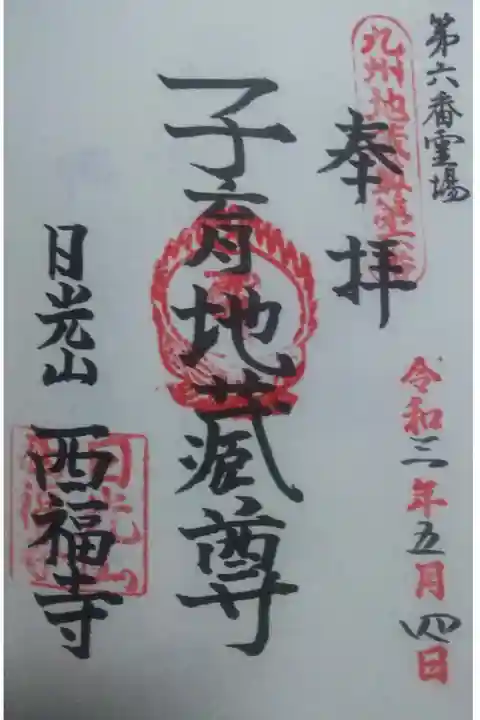 第六番霊場
九州地蔵尊第六番
奉拝
令和三年五月四日
子育地蔵尊
日光山
西福寺
日光山
西福寺